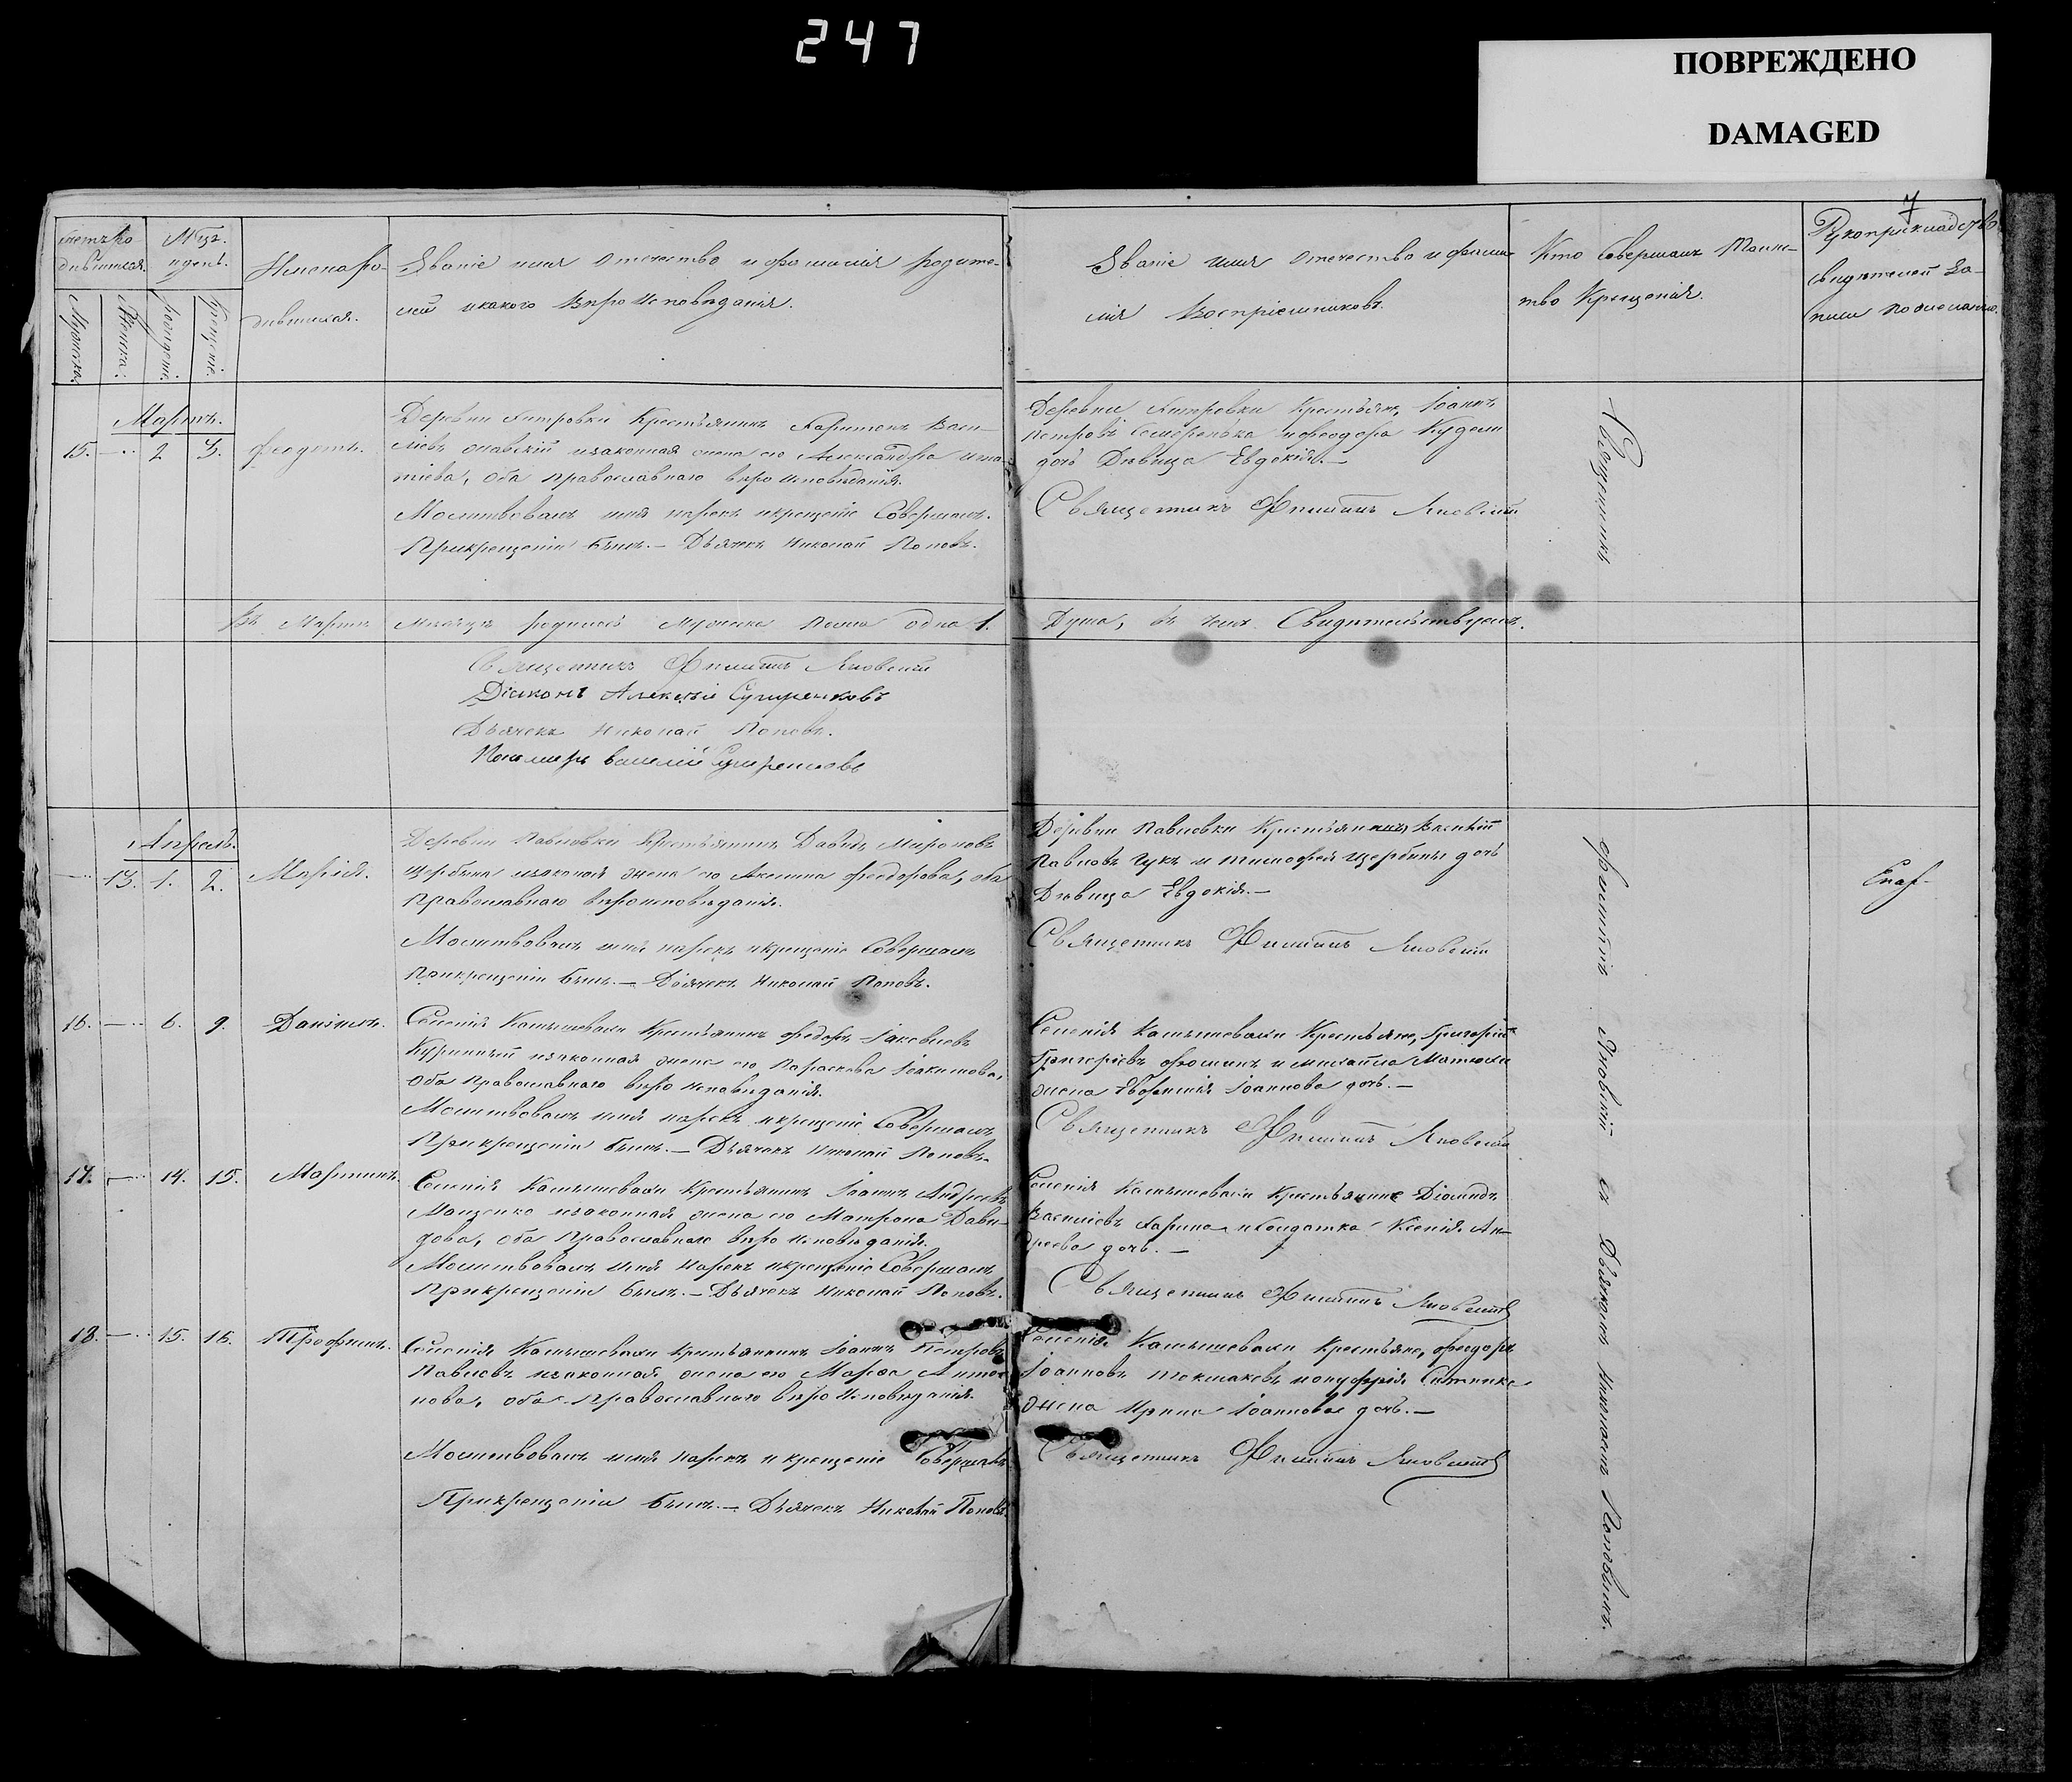 247
ПОВРЕЖДЕНО
DAMAGED
7
Счетъ ро
дившихся.
Мужеска.
Женска.
Мѣц.
и день.
Рожденія.
Крещенія.
Имена ро-
дившихся.
Званіе имя отечество и фамилія родите-
лей и какого вѣроисповѣданія.
Званіе имя отечество и фами-
лія Воспріемниковъ.
Кто совершалъ Таинс-
тво Крещенія.
Рукоприкладство
свидѣтелей за-
писи по желанію.
Мартъ.
15. — 2 3. Феодотъ.
Деревни Петровки Крестьянинъ Харитонъ Васи-
лievъ и законная жена его Александра
оба православнаго вѣроисповѣданія.
Молитвовалъ имя нарекъ и крещеніе совершалъ.
При крещеніи былъ. — Дьячекъ Николай Поповъ.
Деревни Петровки Крестьянинъ Іоаннъ
Петровъ и Феодора
дочь Дѣвица Евдокія. —
Священникъ Филиппъ Яновскій
Въ Мартѣ Мѣсяцѣ родилось Мужеска Пола одна 1.
Душа, въ чемъ Свидѣтельствуемъ.
Священникъ Филиппъ Яновскій
Діаконъ Алексѣй
Дьячекъ Николай Поповъ.
Пономарь Василій
Апрѣль.
— 13. 1. 2. Марія.
Деревни Павловки Крестьянинъ Давидъ Мироновъ
Щербина и законная жена его Акилина Феодорова, оба
Православнаго вѣроисповѣданія.
Молитвовалъ имя нарекъ и крещеніе Совершалъ
При крещеніи былъ. — Дьячекъ Николай Поповъ.
Деревни Павловки Крестьянинъ Василій
Павловъ Гукъ и Тимофея Щербины дочь
Дѣвица Евдокія. —
Священникъ Филиппъ Яновскій
16. — 6. 9. Даніилъ.
Селенія Камышевахи Крестьянинъ Федоръ Іаковлевъ
и законная жена его Параскева Іоакимова,
оба Православнаго вѣроисповѣданія.
Молитвовалъ имя нарекъ и крещеніе Совершалъ
При крещеніи былъ. — Дьячекъ Николай Поповъ.
Селенія Камышевахи Крестьяне, Григорій
Григорьевъ и Михаила
жена Евфимія Іоаннова дочь. —
Священникъ Филиппъ Яновскій
17. — 14. 15. Мартинъ.
Селенія Камышевахи Крестьянинъ Іоаннъ Андреевъ
и законная жена его Матрона Дави-
дова, оба Православнаго вѣроисповѣданія.
Молитвовалъ имя нарекъ и крещеніе Совершалъ
При крещеніи былъ. — Дьячекъ Николай Поповъ.
Селенія Камышевахи Крестьянинъ Діомидъ
Василіевъ и Солдатка Ксенія Ан-
дреева дочь. —
Священникъ Филиппъ Яновскій
18. — 15. 16. Трофимъ.
Селенія Камышевахи Крестьянинъ Іоаннъ Петровъ
Павловъ и законная жена его Марфа Анто-
нова, оба Православнаго вѣроисповѣданія.
Молитвовалъ имя нарекъ и крещеніе Совершалъ
При крещеніи былъ. — Дьячекъ Николай Поповъ.
Селенія Камышевахи Крестьяне, Феодоръ
Іоанновъ Токмаковъ и Онуфрія
жена Ирина Іоаннова дочь. —
Священникъ Филиппъ Яновскій
Священникъ Филиппъ Яновскій съ Дьячкомъ Николаемъ Поповымъ.